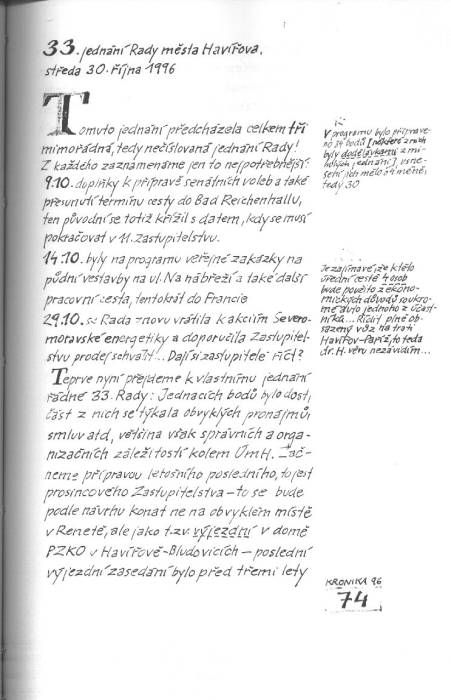 33. jednání Rady města Havířova,
středa 30. října 1996
Tomuto jednání předcházela celkem tři
mimořádná, tedy nečíslovaná jednání Rady!
Z každého zaznamenáme jen to nejpotřebnější:
9.10. doplňky k přípravě senátních voleb a také
přesunutí termínu cesty do Bad Reichenhallu,
ten původní se totiž křížil s datem, kdy se musí
pokračovat v 11. zastupitelstvu.
14.10. byly na programu veřejné zakázky na
půdní vestavby na ul. Na nábřeží a také další
pracovní cesta, tentokrát do Francie
29.10. se Rada znovu vrátila k akciím Severo-
moravské energetiky a doporučila Zastupitel-
stvu prodej schválit... Dají si zastupitelé říct?
Teprve nyní přejdeme k vlastnímu jednání
řádné 33. Rady: Jednacích bodů bylo dost,
část z nich se týkala obvyklých pronájmů,
smluv atd, většina však správních a orga-
nizačních záležitostí kolem ÚmH. Zač-
neme přípravou letošního posledního, to jest
prosincového Zastupitelstva – to se bude
podle návrhu konat ne na obvyklém místě
v Renetě, ale jako t.zv. výjezdní v domě
PZKO v Havířově-Bludovicích – poslední
výjezdní zasedání bylo před třemi lety
V programu bylo připrave-
no bodů (některé z nich
byly dodělávkami z mi-
nulých jednání), usne-
sení jich mělo o 4 méně,
tedy 30
Je zajímavé, že k této
úřední cestě 4 osob
bude použito z ekono-
mických důvodů soukro-
mé auto jednoho z účast-
níků... Řídit plně ob-
sazený vůz na trati
Havířov-Paříž, to teda
dr. H. věru nezávidím...
KRONIKA 96
74